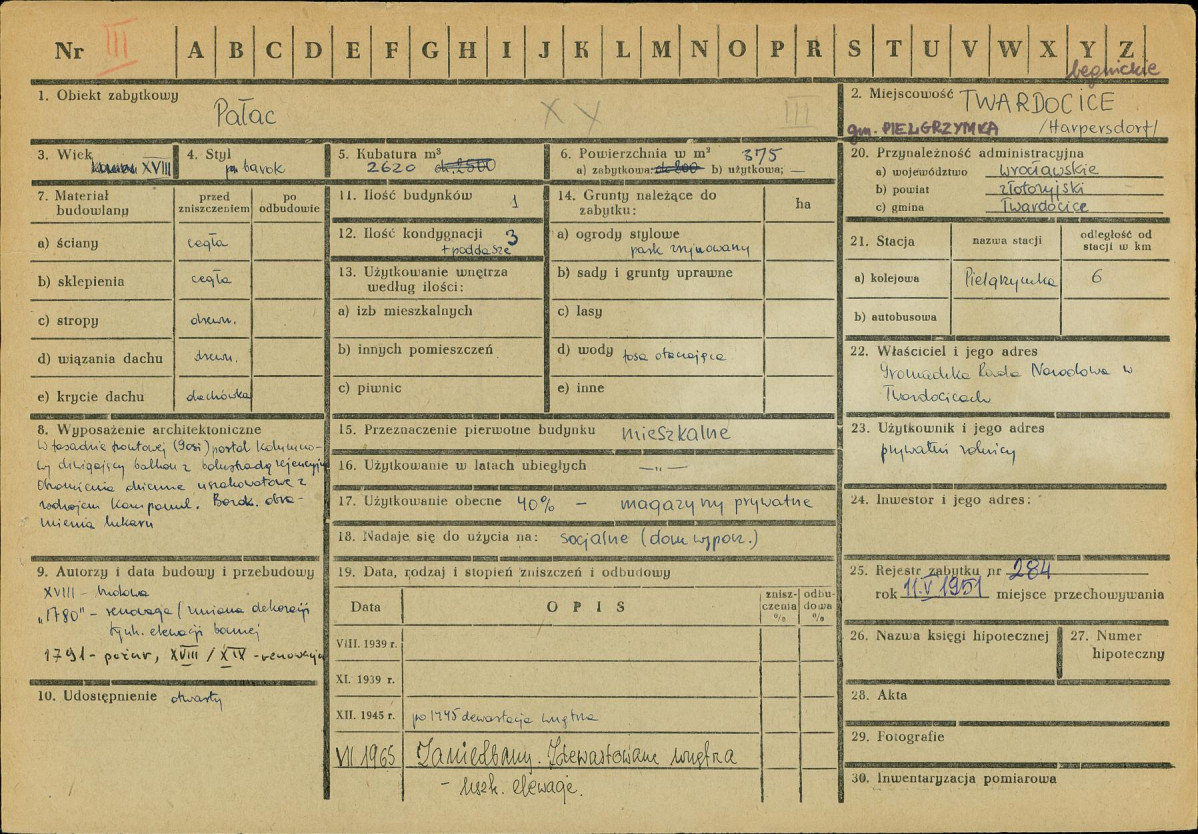 Nr III A B C D E F G H I J K L M N O P R S T U V W X Y Z
legnickie
1. Obiekt zabytkowy
Pałac
X X III
2. Miejscowość TWARDOCICE
gm. PIELGRZYMKA /Harpersdorf/
3. Wiek
XVIII
4. Styl
barok
5. Kubatura m³
2620 ok. 2500
6. Powierzchnia w m² 375
a) zabytkowa: ok. 800 b) użytkowa: —
7. Materiał budowlany
przed zniszczeniem
po odbudowie
a) ściany cegła
b) sklepienia cegła
c) stropy drewn.
d) wiązania dachu drewn.
e) krycie dachu dachówka
8. Wyposażenie architektoniczne
W fasadzie frontowej (9osi) portal kolumno-
wy dźwigający balkon z balustradą regencyjną
Obramienia okienne uszakowate z
rodzajem kampanul. Barok. obra-
mienia lukarn
9. Autorzy i data budowy i przebudowy
XVIII - budowa
"1780" - renowacja (zmiana dekoracji
tynk. elewacji bocznej
1791 - pożar, XVIII / XIX - renowacja
10. Udostępnienie otwarty
11. Ilość budynków 1
12. Ilość kondygnacji 3
+ poddasze
13. Użytkowanie wnętrza
według ilości:
a) izb mieszkalnych
b) innych pomieszczeń
c) piwnic
14. Grunty należące do
zabytku:
ha
a) ogrody stylowe
park zrujnowany
b) sady i grunty uprawne
c) lasy
d) wody fosa otaczająca
e) inne
15. Przeznaczenie pierwotne budynku mieszkalne
16. Użytkowanie w latach ubiegłych — „ —
17. Użytkowanie obecne 40% - magazyny prywatne
18. Nadaje się do użycia na: socjalne (dom wypocz.)
19. Data, rodzaj i stopień zniszczeń i odbudowy
Data
O P I S
znisz-
czenia
%
odbu-
dowa
%
VIII. 1939 r.
XI. 1939 r.
XII. 1945 r. po 1945 dewastacja wnętrza
VII 1965 Zaniedbany. Zdewastowane wnętrza
- uszk. elewacje.
20. Przynależność administracyjna
a) województwo wrocławskie
b) powiat złotoryjski
c) gmina Twardocice
21. Stacja
nazwa stacji
odległość od
stacji w km
a) kolejowa Pielgrzymka 6
b) autobusowa
22. Właściciel i jego adres
Gromadzka Rada Narodowa w
Twardocicach
23. Użytkownik i jego adres
prywatni rolnicy
24. Inwestor i jego adres:
25. Rejestr zabytku nr 284
rok 11.V 1951 miejsce przechowywania
26. Nazwa księgi hipotecznej
27. Numer
hipoteczny
28. Akta
29. Fotografie
30. Inwentaryzacja pomiarowa